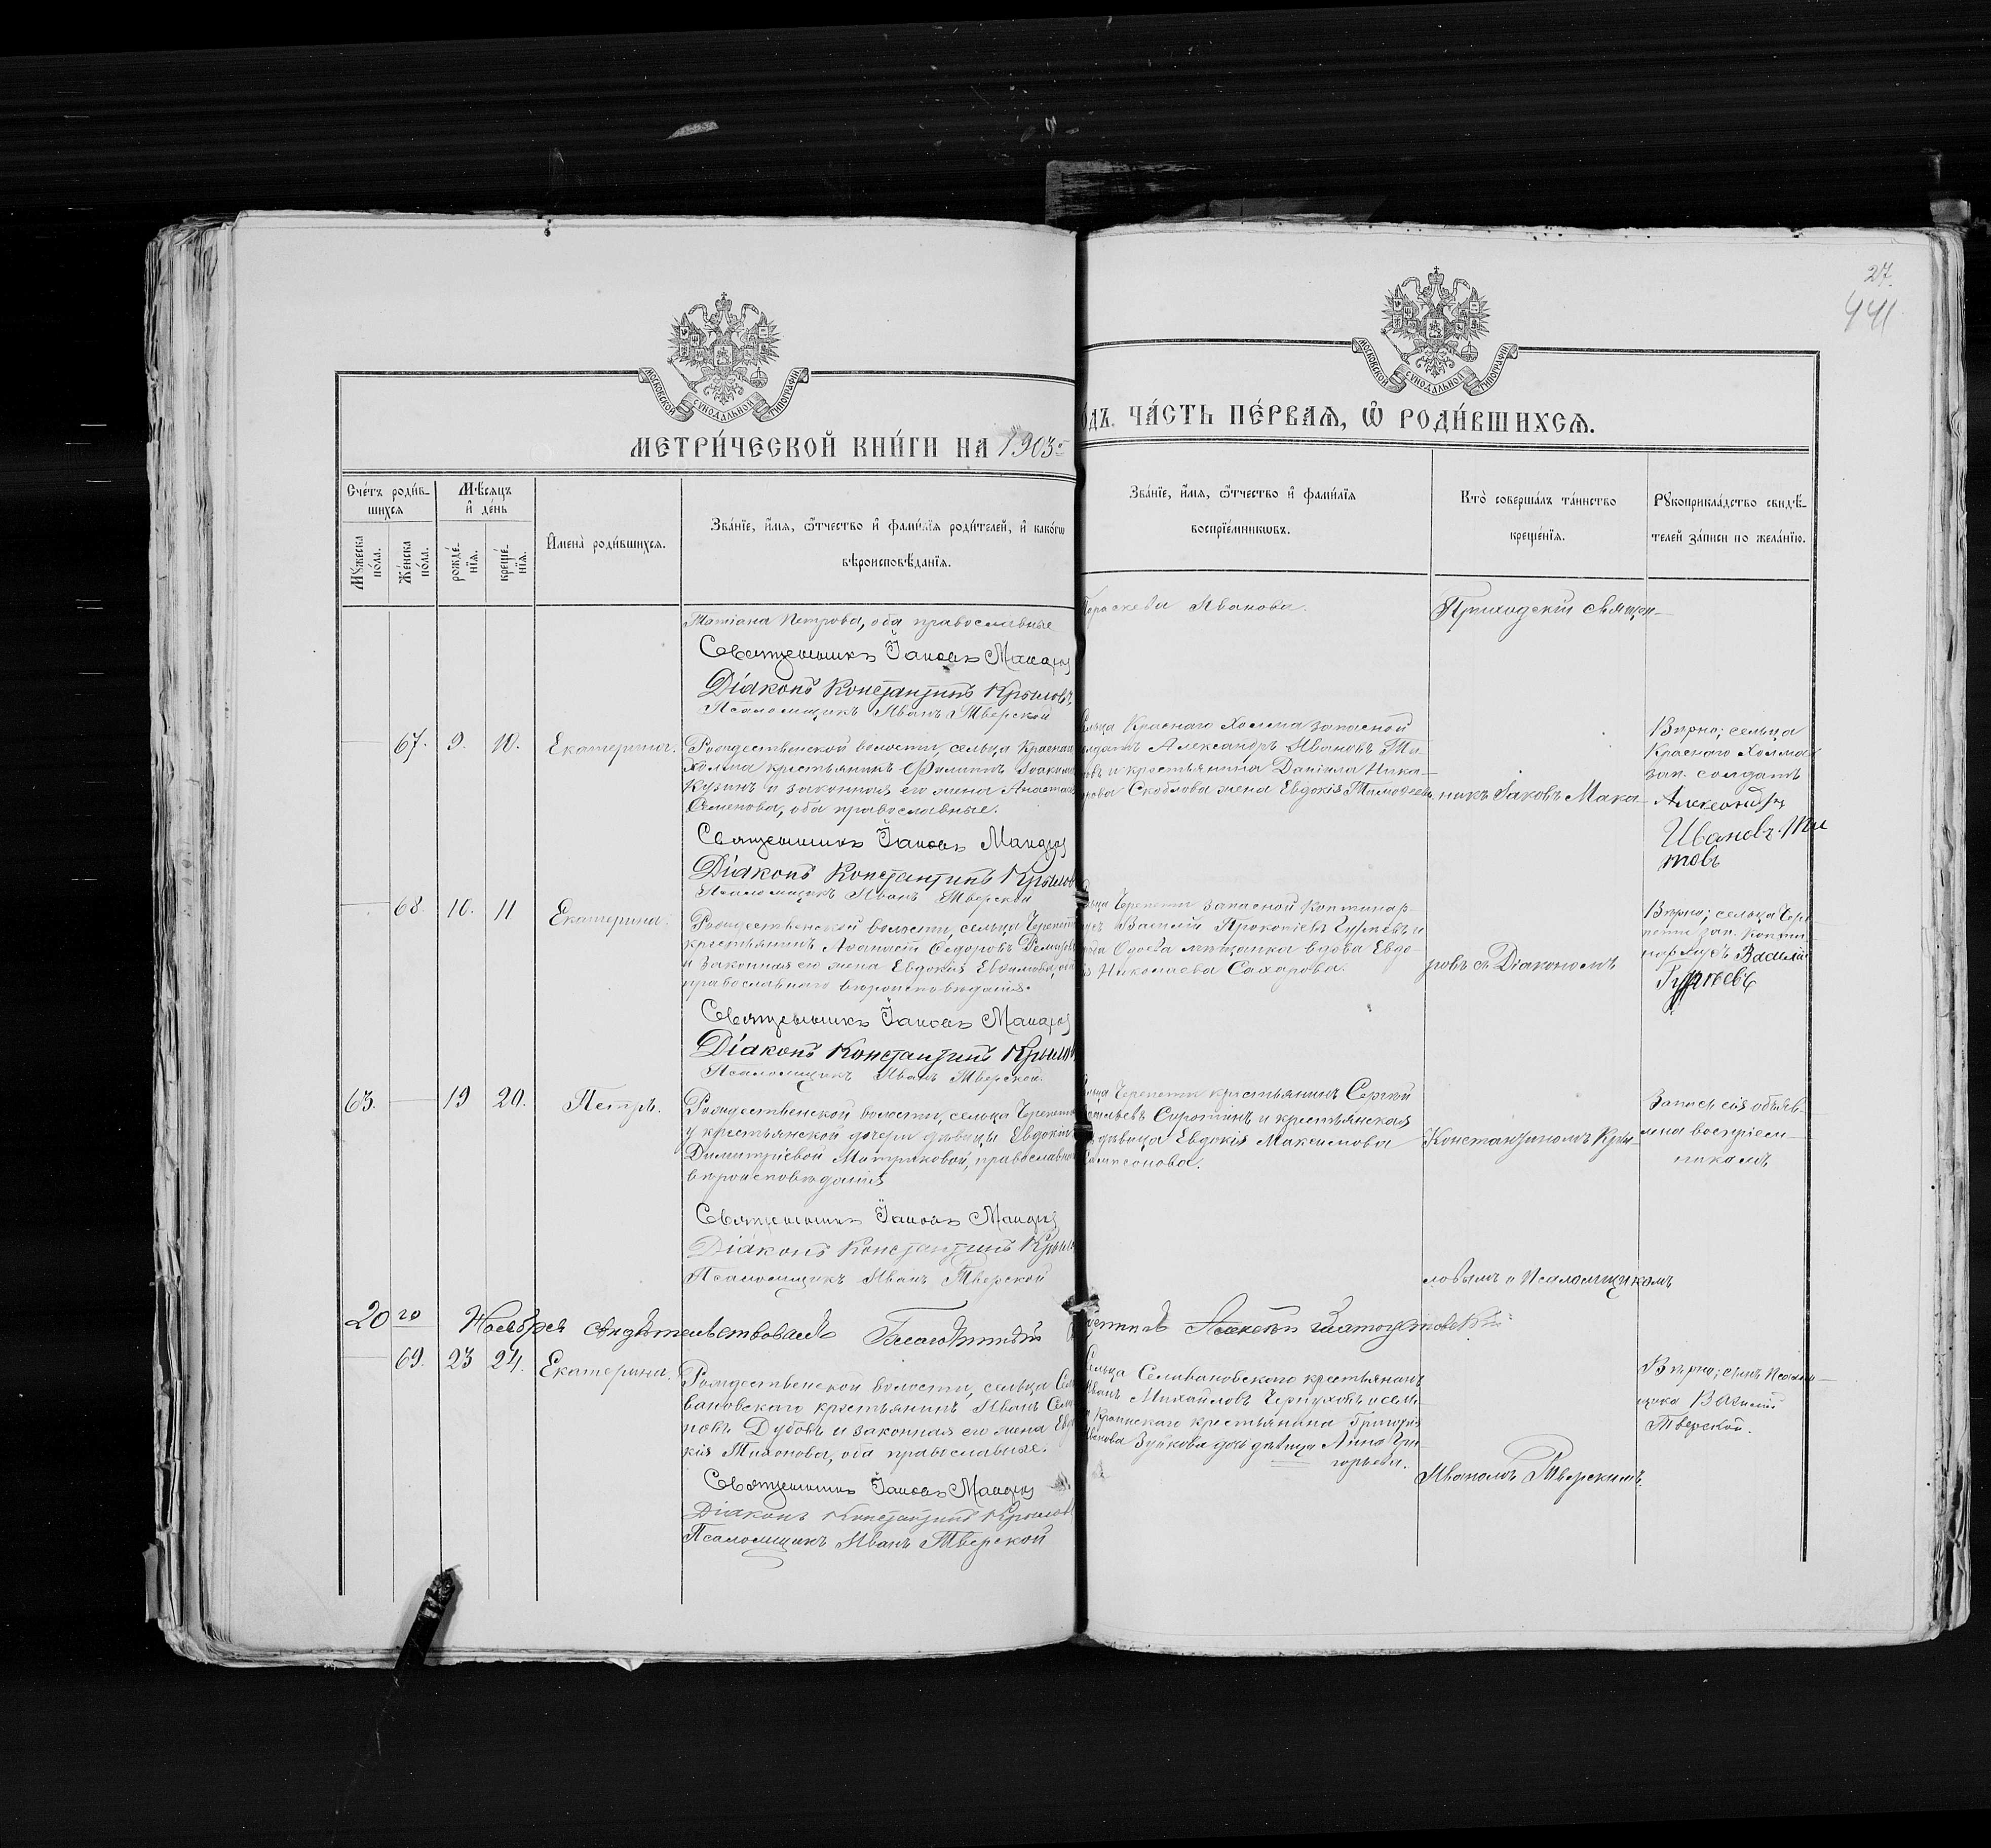 27.
441
МОСКОВСКОЙ СѴНОДАЛЬНОЙ ТИПОГРАФІИ
МОСКОВСКОЙ СѴНОДАЛЬНОЙ ТИПОГРАФІИ
МЕТРИ́ЧЕСКОЙ КНИ́ГИ НА 1903й
ДЪ. ЧА́СТЬ ПЕ́РВАѦ, Ѡ҆ РОДИ́ВШИХСѦ.
Сче́тъ роди́в-
шихся
Мѣ́сяцъ
и҆ де́нь
Мꙋ́жеска по́ла.
Же́нска по́ла.
рожде́-
нїя.
креще́-
нїя.
И҆мена̀ роди́вшихся.
Зва́нїе, и҆́мя, ѻ҆́тчество и҆ фами́лїя роди́телей, и҆ како́гѡ
вѣроисповѣ́данїя.
Зва́нїе, и҆́мя, ѻ҆́тчество и҆ фами́лїя
воспрїе́мникѡвъ.
Кто̀ соверша́лъ та́инство
креще́нїя.
Рꙋкоприкла́дство свидѣ́-
телей за́писи по жела́нїю.
Татіана Петрова, оба православные
Священникъ Іаковъ Макаров
Діаконъ Константинъ Крыловъ
Псаломщикъ Иванъ Тверской
Параскева Иванова.
Приходскій священ-
67. 9. 10. Екатерина.
Рождественской волости, сельца Краснаго
Холма крестьянинъ Филиппъ Іоакимов
Кузинъ и законная его жена Анастасія
Семенова, оба православные.
Священникъ Іаковъ Макаров
Діаконъ Константинъ Крылов
Псаломщикъ Иванъ Тверской
Сельца Краснаго Холма запасной
солдатъ Александръ Ивановъ Ти-
товъ и крестьянина Даніила Ника-
норова Скоблова жена Евдокія Тимофеева.
никъ Іаковъ Мака-
Вѣрно; сельца
Краснаго Холма
зап. солдатъ
Александръ
Ивановъ Ти
товъ
68. 10. 11 Екатерина.
Рождественской волости, сельца Черепети
крестьянинъ Аѳанасій Ѳедоровъ
и законная его жена Евдокія Евфимова, оба
православнаго вѣроисповѣданія.
Священникъ Іаковъ Макаров
Діаконъ Константинъ Крылов
Псаломщикъ Иванъ Тверской.
Сельца Черепети запасной
Василій Прокопіевъ и
города Одоева мѣщанка вдова Евдо-
кія Николаева Сахарова.
ровъ съ Діакономъ
Вѣрно; сельца Чере
пети зап.
Василій
63. 19 20. Петръ.
Рождественской волости, сельца Черепети
у крестьянской дочери дѣвицы Евдокіи
Димитріевой православнаго
вѣроисповѣданія
Священникъ Іаковъ Макаров
Діаконъ Константинъ Крылов
Псаломщикъ Иванъ Тверской
Сельца Черепети крестьянинъ Сергѣй
Сиротинъ и крестьянская
дѣвица Евдокія Максимова
Самсонова.
Константиномъ Кры-
Запись сія объяв-
лена воспріем-
никамъ
ловымъ и Псаломщикомъ
20го Ноября свидѣтельствовалъ Благочинный Алексѣй
69. 23 24. Екатерина.
Рождественской волости, сельца Сели
вановскаго крестьянинъ Иванъ Семе
новъ Дубовъ и законная его жена Евдо
кія Тихонова, оба православные.
Священникъ Іаковъ Макаров
Діаконъ Константинъ Крылов
Псаломщикъ Иванъ Тверской
Сельца Селивановского крестьянинъ
Иванъ Михайловъ и сель
ца крестьянина Григорія
Иванова Зуйкова дочь дѣвица Анна Гри-
горьева.
Иваномъ Тверскимъ.
Вѣрно; сынъ Псалом-
щика Василій
Тверской.